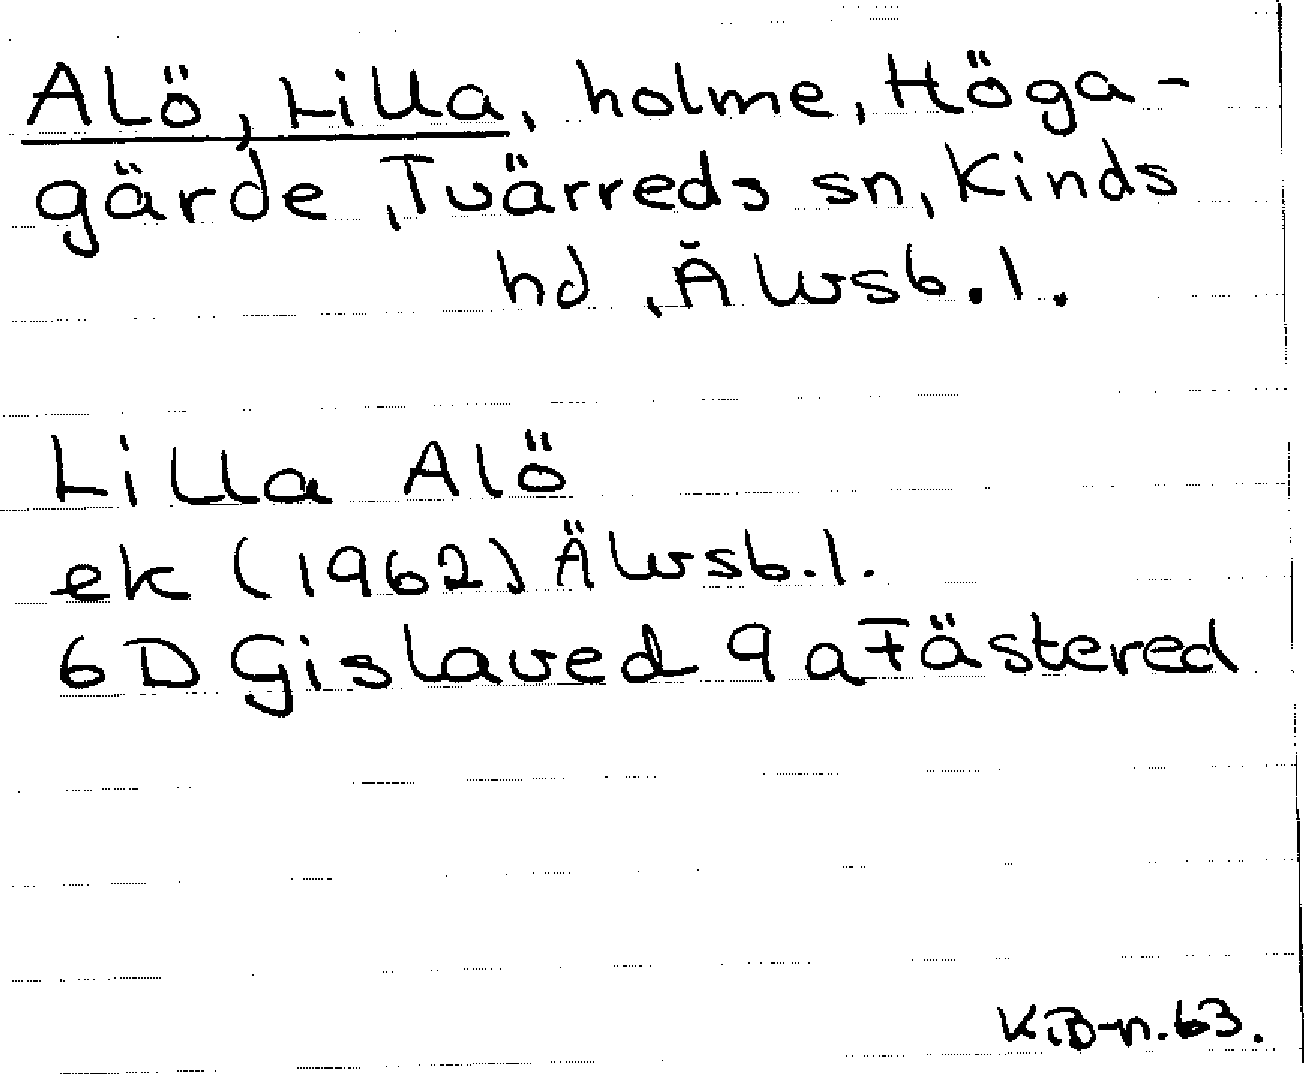 Alö, Lilla, holme, Höga-
gärde, Tvärreds sn, Kinds
hd, Älvsb. l.
Lilla Alö
ek (1962) Älvsb. l.
6D Gislaved 9a Fästered
KiB-n. 63.